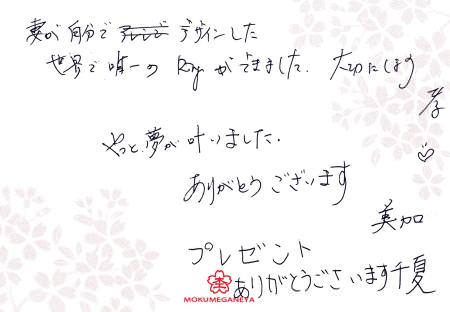 妻が自分で アレンジ デザインした
世界で唯一の Ringができました。大切にします
孝
やっと、夢が叶いました。
ありがとうございます
英加
プレゼント
ありがとうございます千夏
MOKUMEGANEYA